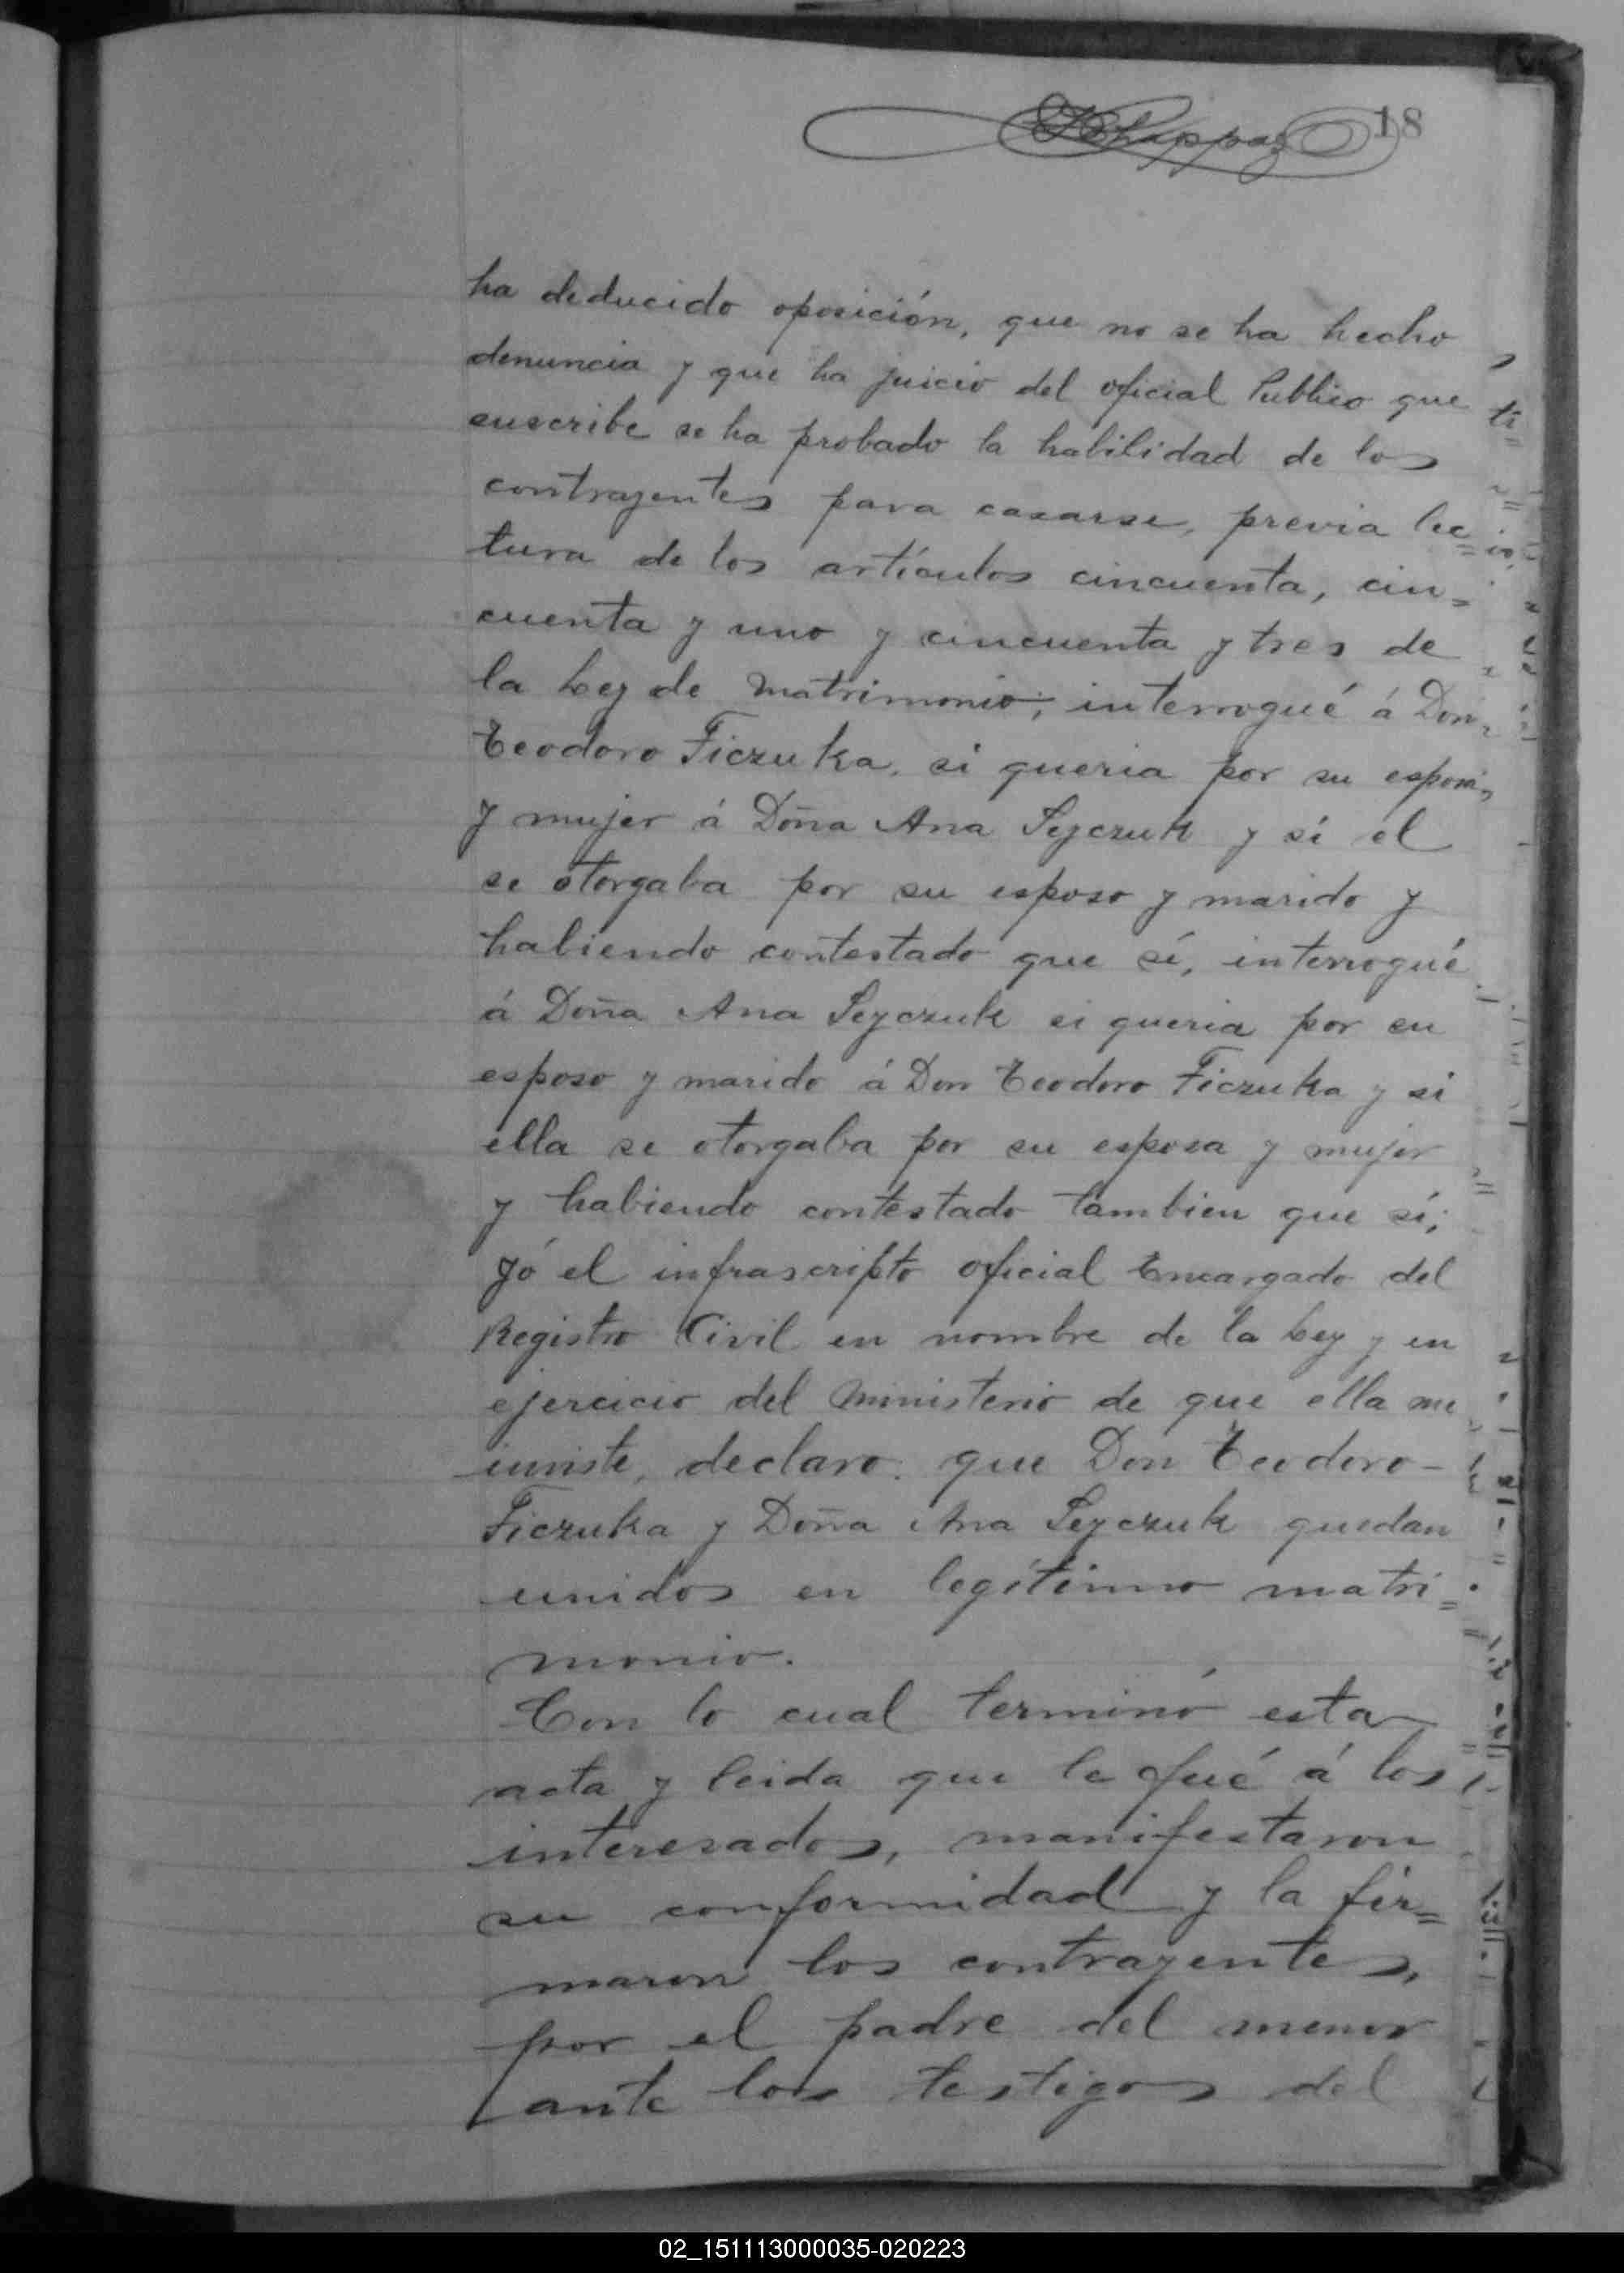 18
ha deducido oposición, que no se ha hecho
denuncia y que ha juicio del oficial Publico que
suscribe se ha probado la habilidad de los
contrayentes para casarse, previa lec=
tura de los artículos cincuenta, cin=
cuenta y uno y cincuenta y tres de
la Ley de Matrimonio; interrogué á Don
Teodoro Ficzuka, si queria por su esposa
y mujer á Doña Ana Seyczuk y si el
se otorgaba por su esposo y marido y
habiendo contestado que sí, interrogué
á Doña Ana Seyczuk si queria por su
esposo y marido á Don Teodoro Ficzuka y si
ella se otorgaba por su esposa y mujer
y habiendo contestado tambien que sí;
yó el infrascripto oficial Encargado del
Registro Civil en nombre de la Ley y en
ejercicio del Ministerio de que ella me
inviste, declaro: que Don Teodoro -
Ficzuka y Doña Ana Seyczuk quedan
unidos en legítimo matri=
monio.
Con lo cual terminó esta
acta y leida que le fué á los
interesados, manifestaron
su conformidad y la fir=
maron los contrayentes,
por el padre del menor
ante los testigos del
02_151113000035-020223